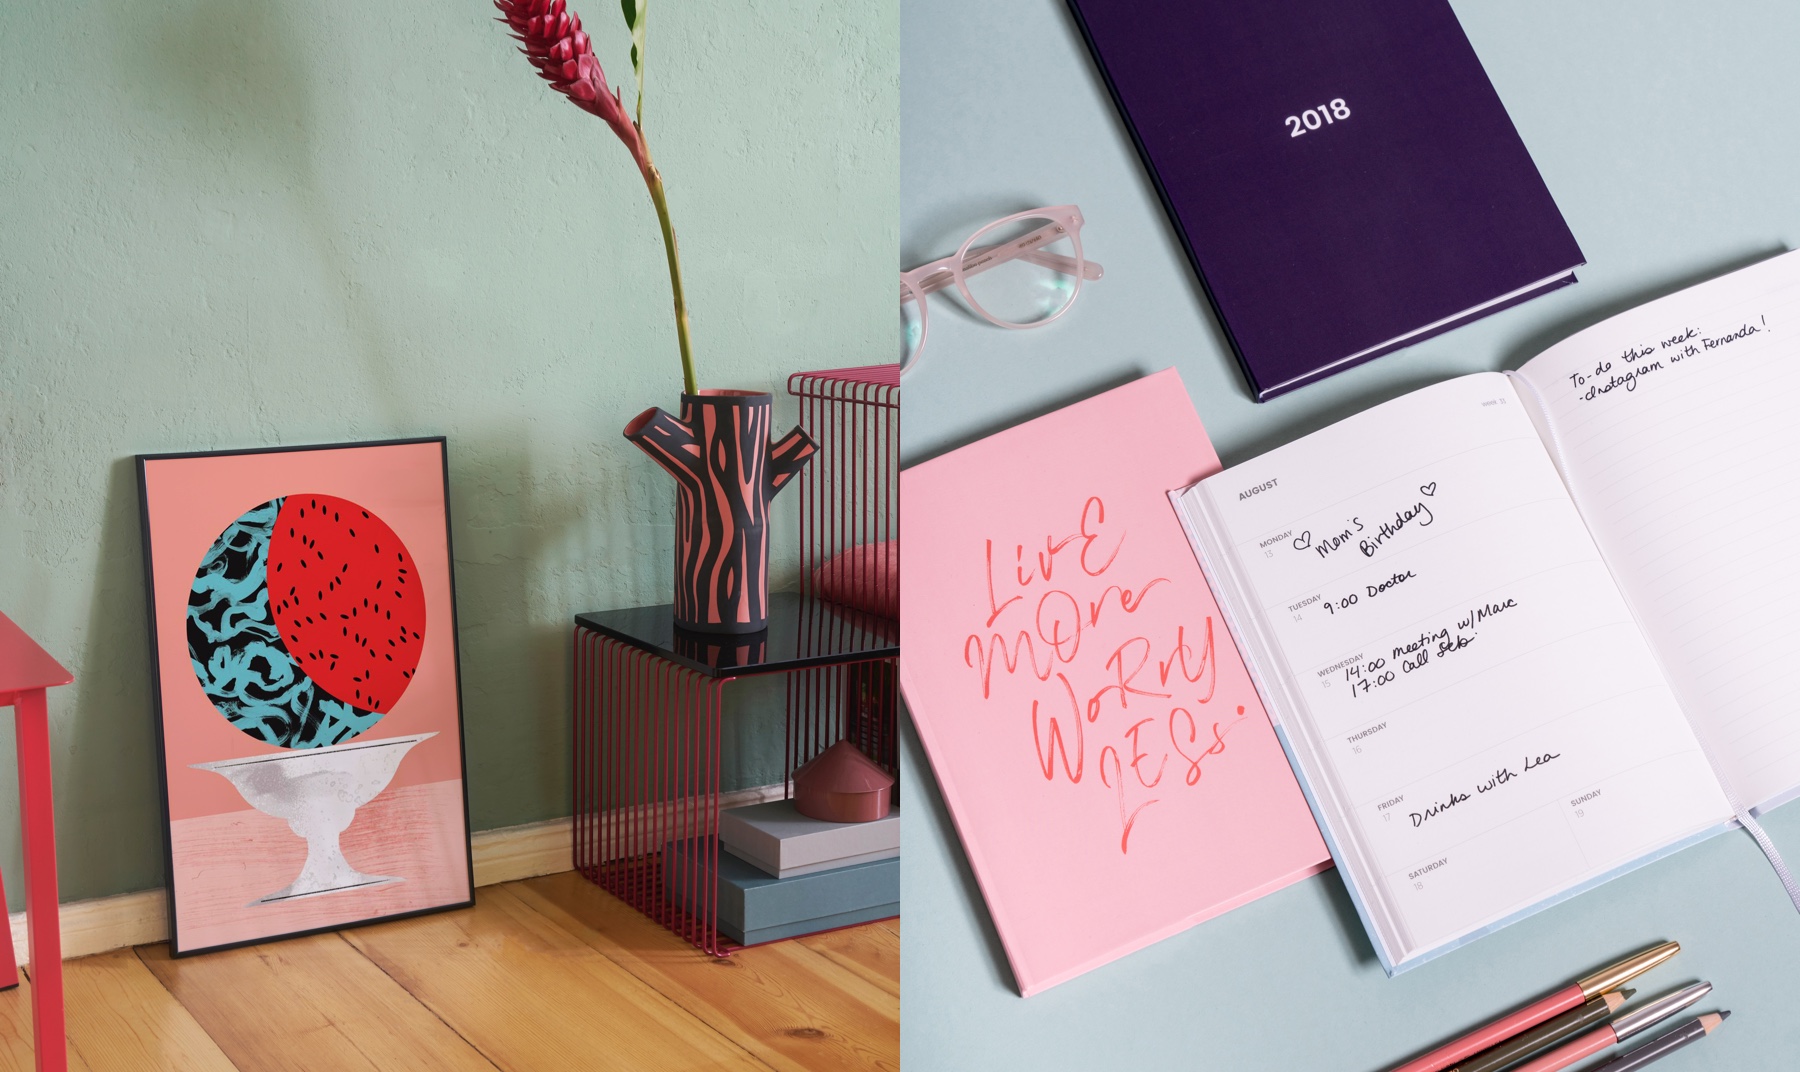 2018
LivE
MOre
WoRrY
LESs.
WEEK
AUGUST
MONDAY
13
♡ Mom's
Birthday ♡
TUESDAY
14
9:00 Doctor
WEDNESDAY
15
14:00 meeting w/Marc
17:00 Call Seb
THURSDAY
16
FRIDAY
17
Drinks with Lea
SATURDAY
18
SUNDAY
19
To-do this week:
-Instagram with Fernanda!